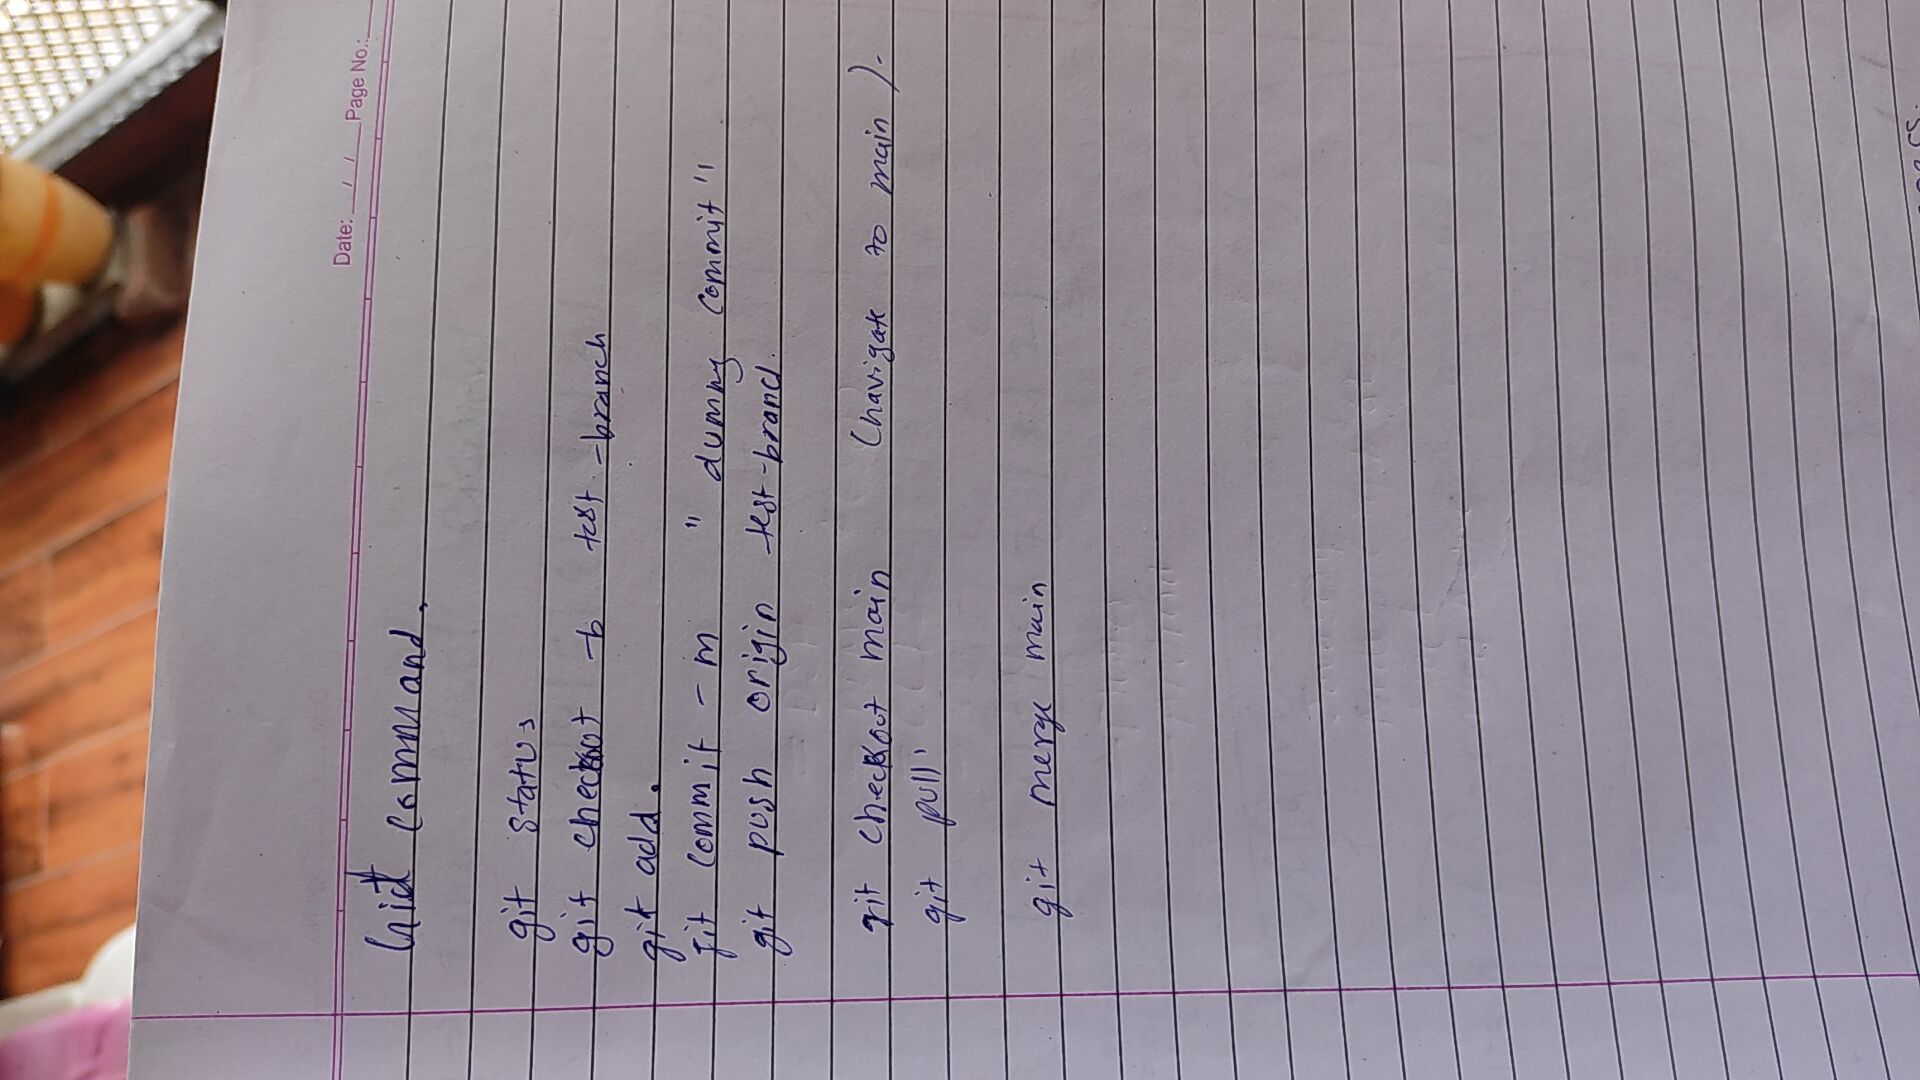 Date: __/__/__ Page No.:
Git command.
git status
git checkout -b test-branch
git add .
git commit -m "dummy commit"
git push origin test-branch.
git checkout main (navigate to main).
git pull
git merge main